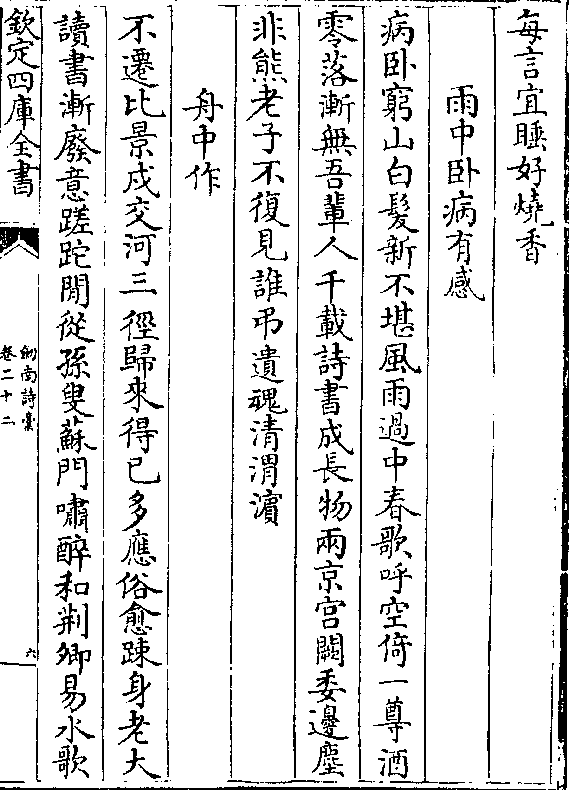 每言宜睡好燒香
雨中卧病有感
病卧窮山白髮新不堪風雨過中春歌呼空倚一尊酒
零落漸無吾輩人千載詩書成長物兩京宫闕委邊塵
非熊老子不復見誰弔遺魂清渭濵
舟中作
不遷比景戍交河三徑歸來得已多應俗愈踈身老大
讀書漸廢意蹉跎閒從孫叟蘇門嘯醉和荆卿易水歌
欽定四庫全書
劎南詩槀
卷二十二
六